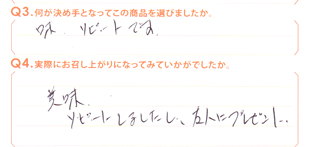 Q3.何が決め手となってこの商品を選びましたか。
味、リピートです
Q4.実際にお召し上がりになってみていかがでしたか。
美味、
リピートしましたし、友人にプレゼント..